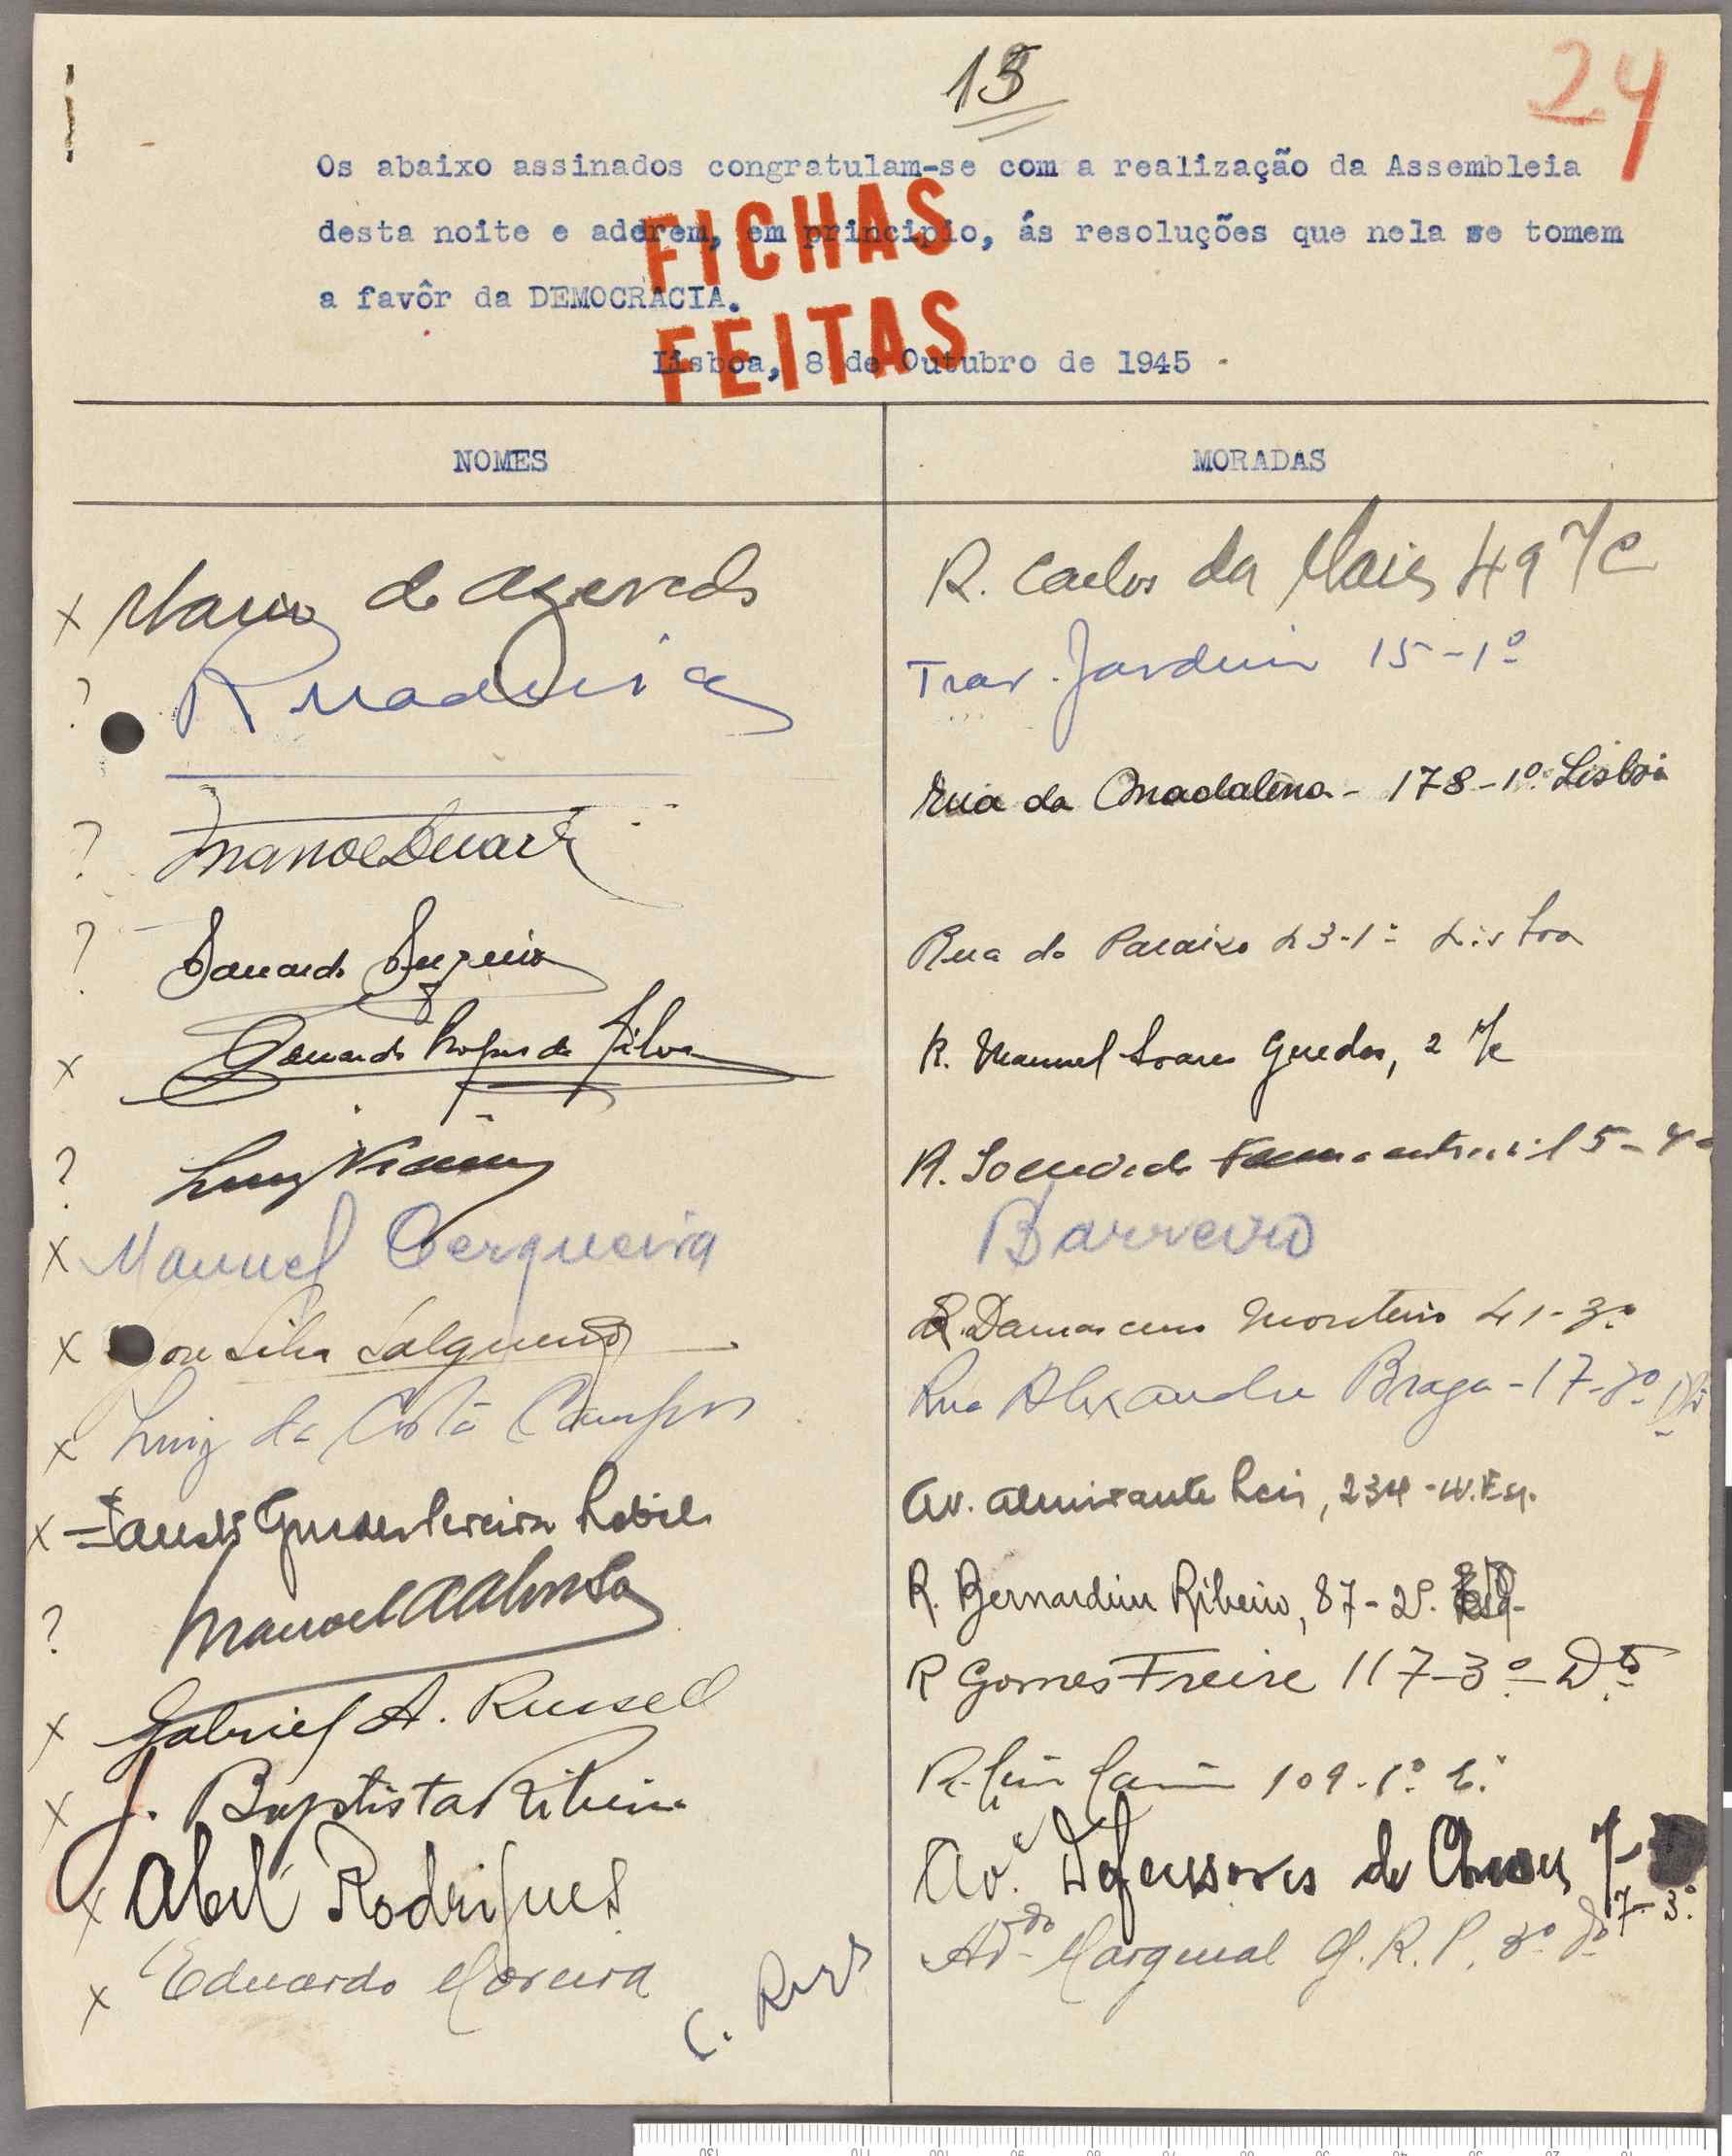 13
24
Os abaixo assinados congratulam-se com a realização da Assembleia
desta noite e adérem, em principio, ás resoluções que nela se tomem
a favôr da DEMOCRACIA.
FICHAS
FEITAS
Lisboa, 8 de Outubro de 1945
NOMES MORADAS
x Mario de Azevedo R. Carlos da Maia 49 r/c
? R Madeira Trav. Jardim 15-1º
? Manoel Duarte Rua da Madalena - 178-1º Lisboa
? Eduardo Rua do Paraizo 23-1º Lisboa
x Eduardo da Silva R. Manuel Soares Guedes, 2 r/c
? Luiz R. 15-4º
x Manuel Cerqueira Barreiro
x José Silva Salgueiro R. Damasceno Monteiro 41-3º
x Luiz da Costa Campos Rua Alexandre Braga - 17-3º
x Pereira Av. Almirante Reis, 234-
? Manoel R. Bernardim Ribeiro, 87-2º. Esq.
x Gabriel A. Russell R Gomes Freire 117-3º-Dtº
x J. Baptista Ribeiro R. 109-1º E.
x Abel Rodrigues Avª. Defensores de Chaves 7-
7-3º
x Eduardo Moreira Marginal G.R.P. 3º
C.